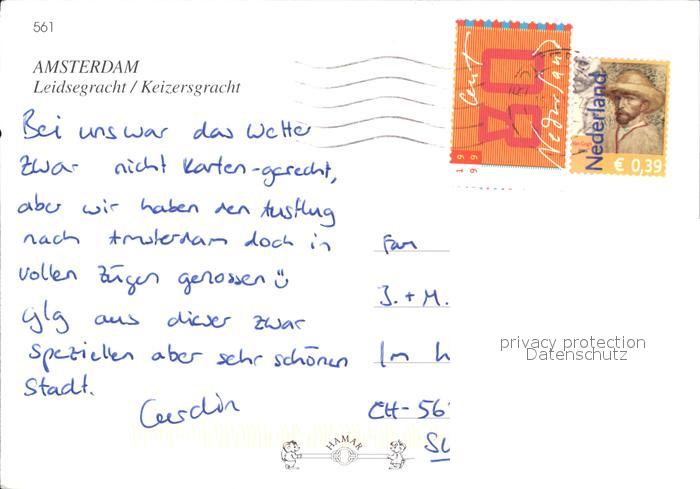 561
AMSTERDAM
Leidsegracht / Keizersgracht
Bei uns war das Wetter
zwar nicht Karten-gerecht,
aber wir haben den Ausflug
nach Amsterdam doch in
vollen Zügen genossen
Glg aus dieser zwar
speziellen aber sehr schönen
Stadt.
cent
80
Nederland
Nederland
€ 0,39
Fam
J. + M.
Im
CH-56
privacy protection
Datenschutz
HAMAR